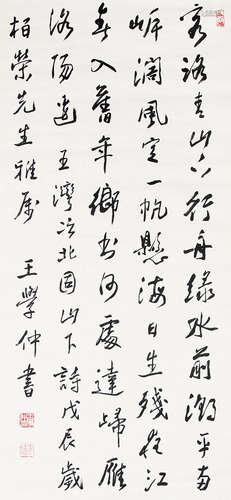 客路青山下行舟綠水前潮平兩
岸闊風正一帆懸海日生殘夜江
春入舊年鄉書何處達歸雁
洛陽邊 王灣次北固山下詩戊辰歲
柏榮先生雅属 王學仲書